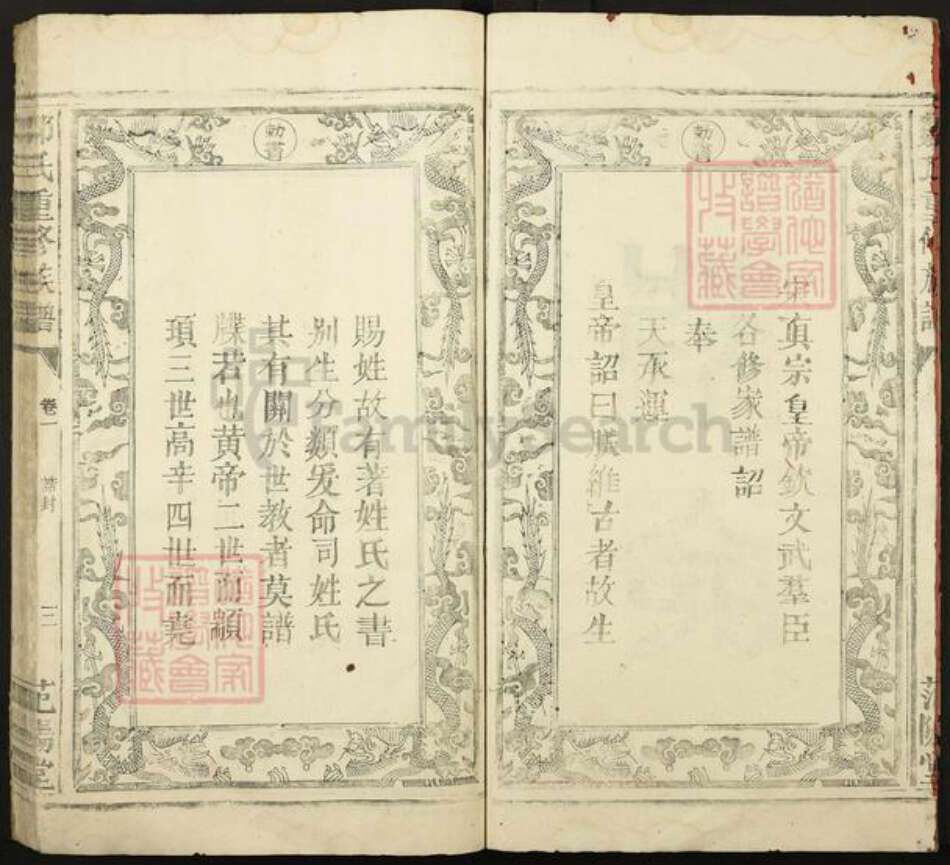 勅書
宋眞宗皇帝欽文武羣臣
各修家譜詔
奉
天承運
皇帝詔曰朕維古者故生
勅書
賜姓故有著姓氏之書
别生分類爰命司姓氏
其有關於世教者莫譜
牒若也黄帝二世而顓
頊三世高辛四世而堯
氏重修族譜
卷一
誥封
三
范陽堂
氏重修族譜
范陽堂
FamilySearch